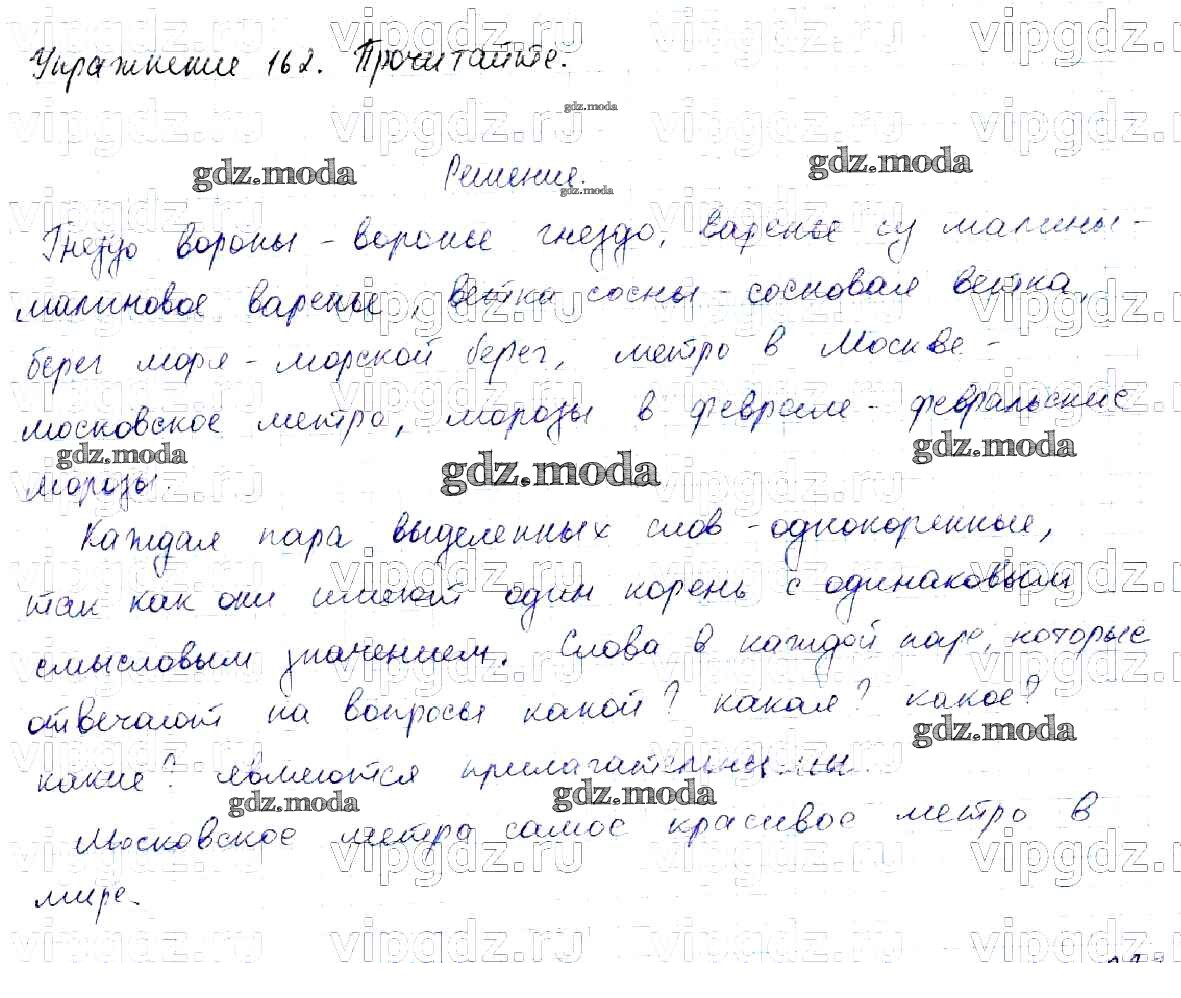 Упражнение 162. Прочитайте.
gdz.moda
Решение.
Гнездо вороны - воронье гнездо, варенье из малины -
малиновое варенье, ветка сосны - сосновая ветка,
берег моря - морской берег, метро в Москве -
московское метро, морозы в феврале - февральские
морозы.
Каждая пара выделенных слов - однокоренные,
так как они имеют один корень с одинаковым
смысловым значением. Слова в каждой паре, которые
отвечают на вопросы какой? какая? какое?
какие? являются прилагательными.
Московское метро самое красивое метро в
мире.
vipgdz.ru